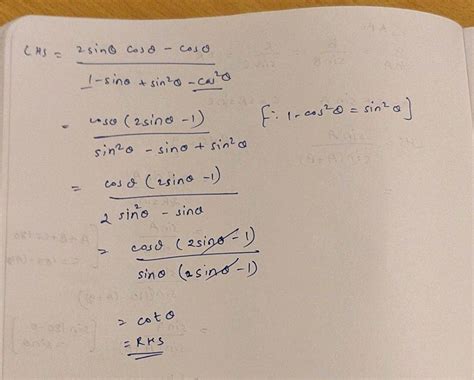 LHS = 2sinθ cosθ - cosθ / 1 - sinθ + sin²θ - cos²θ
= cosθ (2sinθ - 1) / sin²θ - sinθ + sin²θ [∵ 1 - cos²θ = sin²θ]
= cosθ (2sinθ - 1) / 2 sin²θ - sinθ
= cosθ (2sinθ - 1) / sinθ (2sinθ - 1)
= cotθ
= RHS